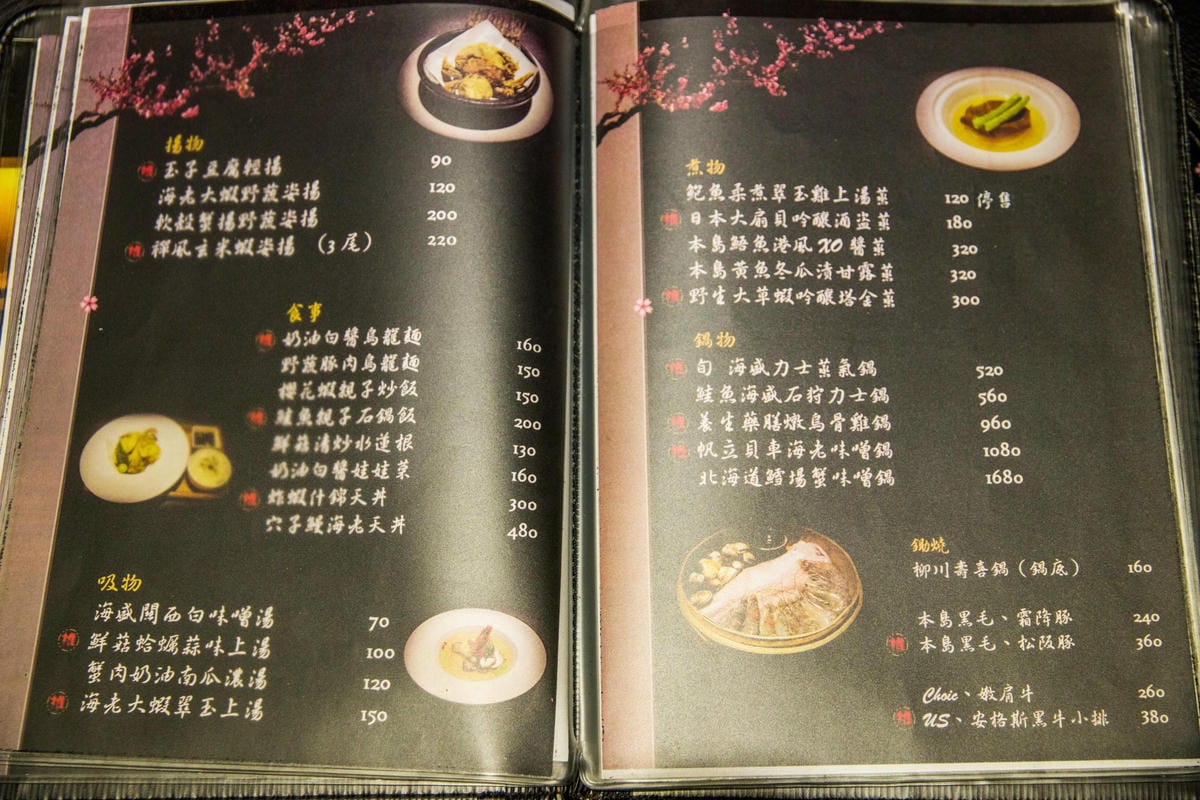 揚物
推 玉子豆腐輕揚 90
海老大蝦野蔬姿揚 120
軟殼蟹揚野蔬姿揚 200
推 禪風玄米蝦姿揚 (3尾) 220
食事
推 奶油白醬烏龍麵 160
野蔬豚肉烏龍麵 150
櫻花蝦親子炒飯 150
推 鮭魚親子石鍋飯 200
鮮菇清炒水蓮根 130
奶油白醬娃娃菜 160
推 炸蝦什錦天丼 300
穴子鰻海老天丼 480
吸物
海威關西白味噌湯 70
推 鮮菇蛤蠣蒜味上湯 100
蟹肉奶油南瓜濃湯 120
推 海老大蝦翠玉上湯 150
煮物
鮑魚柔煮翠玉雞上湯蒸 120 停售
推 日本大扇貝吟釀酒盜蒸 180
本島鱔魚港風XO醬蒸 320
本島黃魚冬瓜漬甘露蒸 320
推 野生大草蝦吟釀塔金蒸 300
鍋物
推 旬 海威力士蒸氣鍋 520
鮭魚海威石狩力士鍋 560
推 養生藥膳燉烏骨雞鍋 960
推 帆立貝車海老味噌鍋 1080
北海道鱈場蟹味噌鍋 1680
鋤燒
柳川壽喜鍋(鍋底) 160
本島黑毛、霜降豚 240
推 本島黑毛、松阪豚 360
Choic、嫩肩牛 260
推 US、安格斯黑牛小排 380